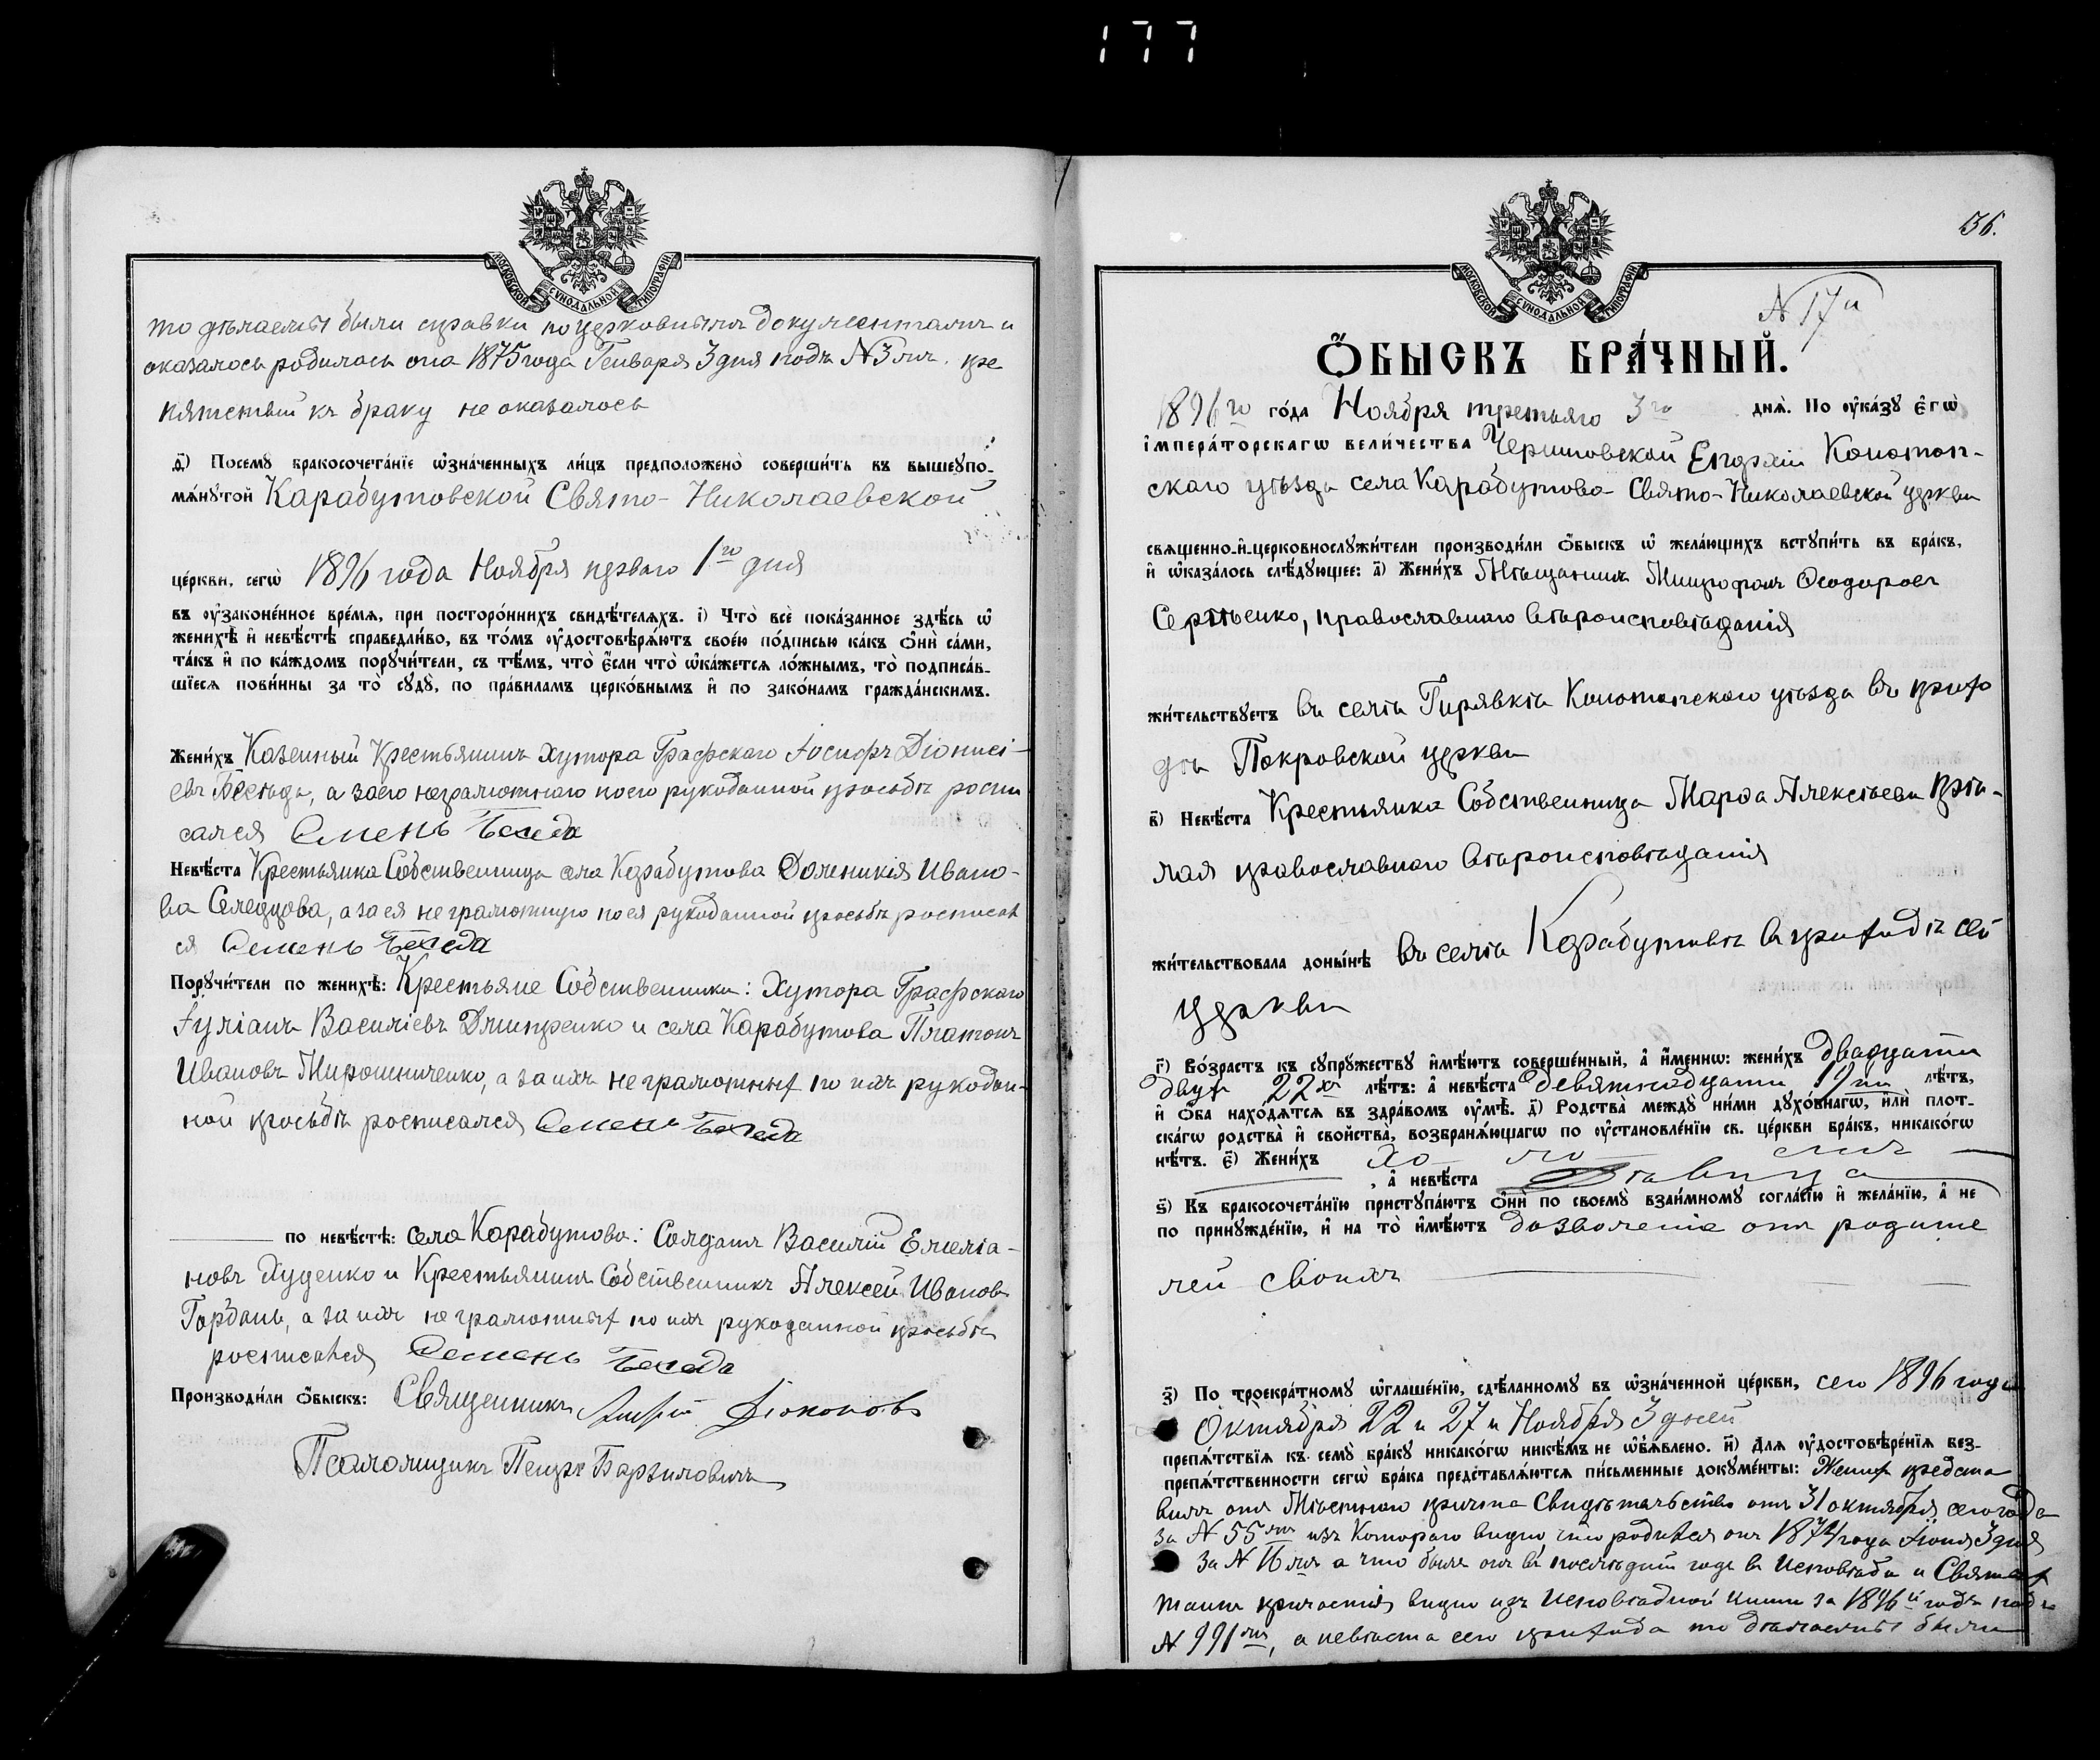 177
МОСКОВСКОЙ СѴНОДАЛЬНОЙ ТИПОГРАФІИ
то дѣлаемы были справки по церковнымъ документамъ и
оказалось родилась она 1875 года Генваря 3 дня подъ № 3 мъ. пре
пятствій къ браку не оказалось
д҃і) Посемꙋ бракосочета́нїе ѡзна́ченныхъ ли́цъ предположено̀ соверши́ть въ вышеꙋпо-
мѧ́нꙋтой Карабутовской Свято-Николаевской
це́ркви, сегѡ̀ 1896 года Ноября перваго 1го дня
въ ᲂу҆законе́нное вре́мѧ, при посторо́ннихъ свидѣ́телѧхъ. і҃) Что̀ всѐ пока́занное здѣ́сь ѡ҆
женихѣ̀ и҆ невѣ́стѣ справедли́во, въ то́мъ ᲂу҆достовѣрѧ́ютъ свое́ю по́дписью ка́къ ѻ҆нѝ са́ми,
та́къ и҆ по ка́ждомъ порꙋчи́тели, съ тѣ́мъ, что̀ є҆́сли что̀ ѡ҆ка́жетсѧ ло́жнымъ, то̀ подписа́в-
шїесѧ пови́нны за то̀ сꙋдꙋ̀, по пра́виламъ церко́внымъ и҆ по зако́намъ гражда́нскимъ.
Жени́хъ Казенный Крестьянинъ хутора Графскаго Іосифъ Діонисі-
евъ Бесѣда, а за его неграмотнаго по его рукоданной просьбѣ роспи
сался Семенъ Беседа
Невѣ́ста Крестьянка Собственница села Карабутова Доминикія Ивано-
ва Селедцова, а за ея неграмотную по ея рукоданной просьбѣ росписал
ся Семенъ Беседа
Порꙋчи́тели по женихѣ̀: Крестьяне Собственники: Хутора Графскаго
Іуліанъ Василіевъ Дмитренко и села Карабутова Платонъ
Ивановъ Мирошниченко, а за ихъ неграмотных по ихъ рукодан-
ной просьбѣ росписался Семенъ Беседа
по невѣ́стѣ: села Карабутова: Солдатъ Василій Емеліа-
новъ Худенко и Крестьянинъ Собственникъ Алексей Иванов
Горбань, а за ихъ неграмотных по ихъ рукоданной просьбѣ
росписался Семенъ Беседа
Производи́ли ѻ҆́быскъ: Священникъ
Псаломщикъ Петръ Барзиловичъ
36.
МОСКОВСКОЙ СѴНОДАЛЬНОЙ ТИПОГРАФІИ
№ 17й
Ѻ҆́БЫСКЪ БРА́ЧНЫЙ.
1896го го́да Ноября третьяго 3го днѧ̀. По ᲂу҆ка́зꙋ є҆гѡ̀
і҆мпера́торскагѡ вели́чества Черниговской Епархіи Конотоп-
скаго уѣзда села Карабутова Свято-Николаевской церкви
свѧщенно-и҆-церковнослꙋжи́тели производи́ли ѻ҆́быскъ ѡ҆ жела́ющихъ встꙋпи́ть въ бра́къ,
и҆ ѡ҆каза́лось слѣ́дꙋющее: а҃) Жени́хъ Мѣщанинъ Митрофанъ Ѳеодоровъ
Сергѣенко, православнаго вѣроисповѣданія
жи́тельствꙋетъ въ селѣ Гирявкѣ Конотопскаго уѣзда въ прихо
дѣ Покровской церкви
в҃) Невѣ́ста Крестьянка Собственница Марѳа Алексѣева
лая православнаго вѣроисповѣданія
жи́тельствовала доны́нѣ въ селѣ Карабутовѣ въ приходѣ сей
церкви
г҃) Во́зрастъ къ сꙋпрꙋ́жествꙋ и҆мѣ́ютъ соверше́нный, а҆ и҆́меннѡ: жени́хъ двадцати
двух 22х лѣ́тъ: а҆ невѣ́ста девятнадцати 19ти лѣ́тъ,
и҆ ѻ҆́ба нахо́дѧтсѧ въ здра́вомъ ᲂу҆мѣ̀. д҃) Родства̀ междꙋ̀ ни́ми дꙋхо́внагѡ, и҆лѝ плот-
ска́гѡ родства̀ и҆ свойства̀, возбранѧ́ющагѡ по ᲂу҆становле́нїю св. це́ркви бра́къ, никако́гѡ
нѣ́тъ. є҃) Жени́хъ хо ло стъ
, а҆ невѣ́ста Дѣвица
ѕ҃) Къ бракосочета́нїю пристꙋпа́ютъ ѻ҆нѝ по своемꙋ̀ взаи́мномꙋ согла́сїю и҆ жела́нїю, а҆ не
по принꙋжде́нїю, и҆ на то̀ и҆мѣ́ютъ дозволеніе отъ родите
лей своихъ
з҃) По троекра́тномꙋ ѡ҆глаше́нїю, сдѣ́ланномꙋ въ ѡ҆зна́ченной це́ркви, сего 1896 года
Октября 22 и 27 и Ноября 3 дней
препѧ́тствїѧ къ семꙋ̀ бра́кꙋ никако́гѡ никѣ́мъ не ѡ҆бъѧ́влено. и҃) Длѧ ᲂу҆достовѣре́нїѧ без-
препѧ́тственности сегѡ̀ бра́ка представлѧ́ютсѧ пи́сьменные докꙋме́нты: Женихъ предста
вилъ отъ Мѣстнаго причта Свидѣтельство отъ 31 октября сего года
за № 55мъ изъ Котораго видно, что родился онъ 1874 года Іюня 3 дня
за № 16мъ а что былъ онъ въ послѣдній годъ въ Исповѣди и Святых
таинъ причастія видно изъ Исповѣдной книги за 1896й годъ подъ
№ 991мъ, а невѣста сего прихода то дѣлаемы были